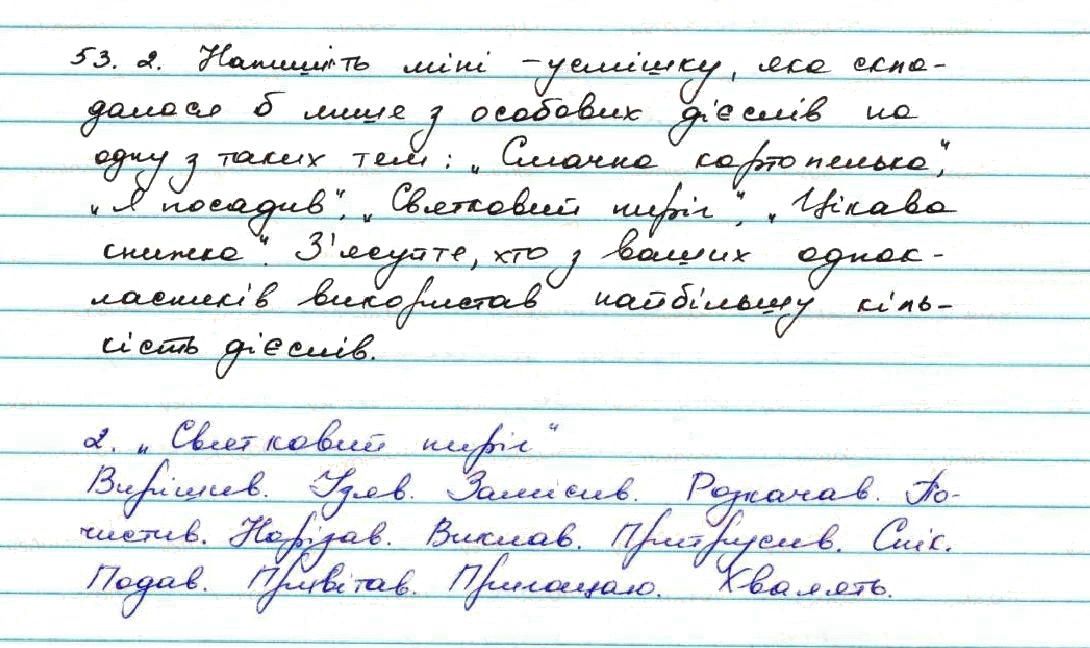 53. 2. Напишіть міні - усмішку, яка скла-
далася б лише з особових дієслів на
одну з таких тем: „Смачна картопелька",
„Я посадив", „Святковий пиріг", „Цікава
книжка". З'ясуйте, хто з ваших однок-
ласників використав найбільшу кіль-
кість дієслів.
2. „Святковий пиріг"
Вирішив. Узяв. Замісив. Розкачав. По-
чистив. Нарізав. Виклав. Притрусив. Спік.
Подав. Привітав. Пригощаю. Хвалять.